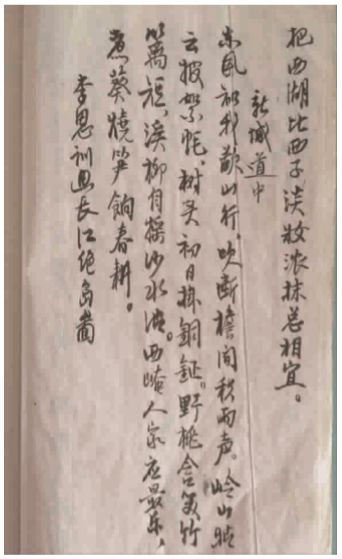 把西湖比西子淡妆浓抹总相宜。
新城道中
东风知我欲山行，吹断檐间积雨声。岭上晴
云披絮帽、树头初日挂铜钲。野桃含笑竹
篱短，溪柳自摇沙水清。西崦人家应最乐、
煮葵烧笋饷春耕。
李思训画长江绝岛图